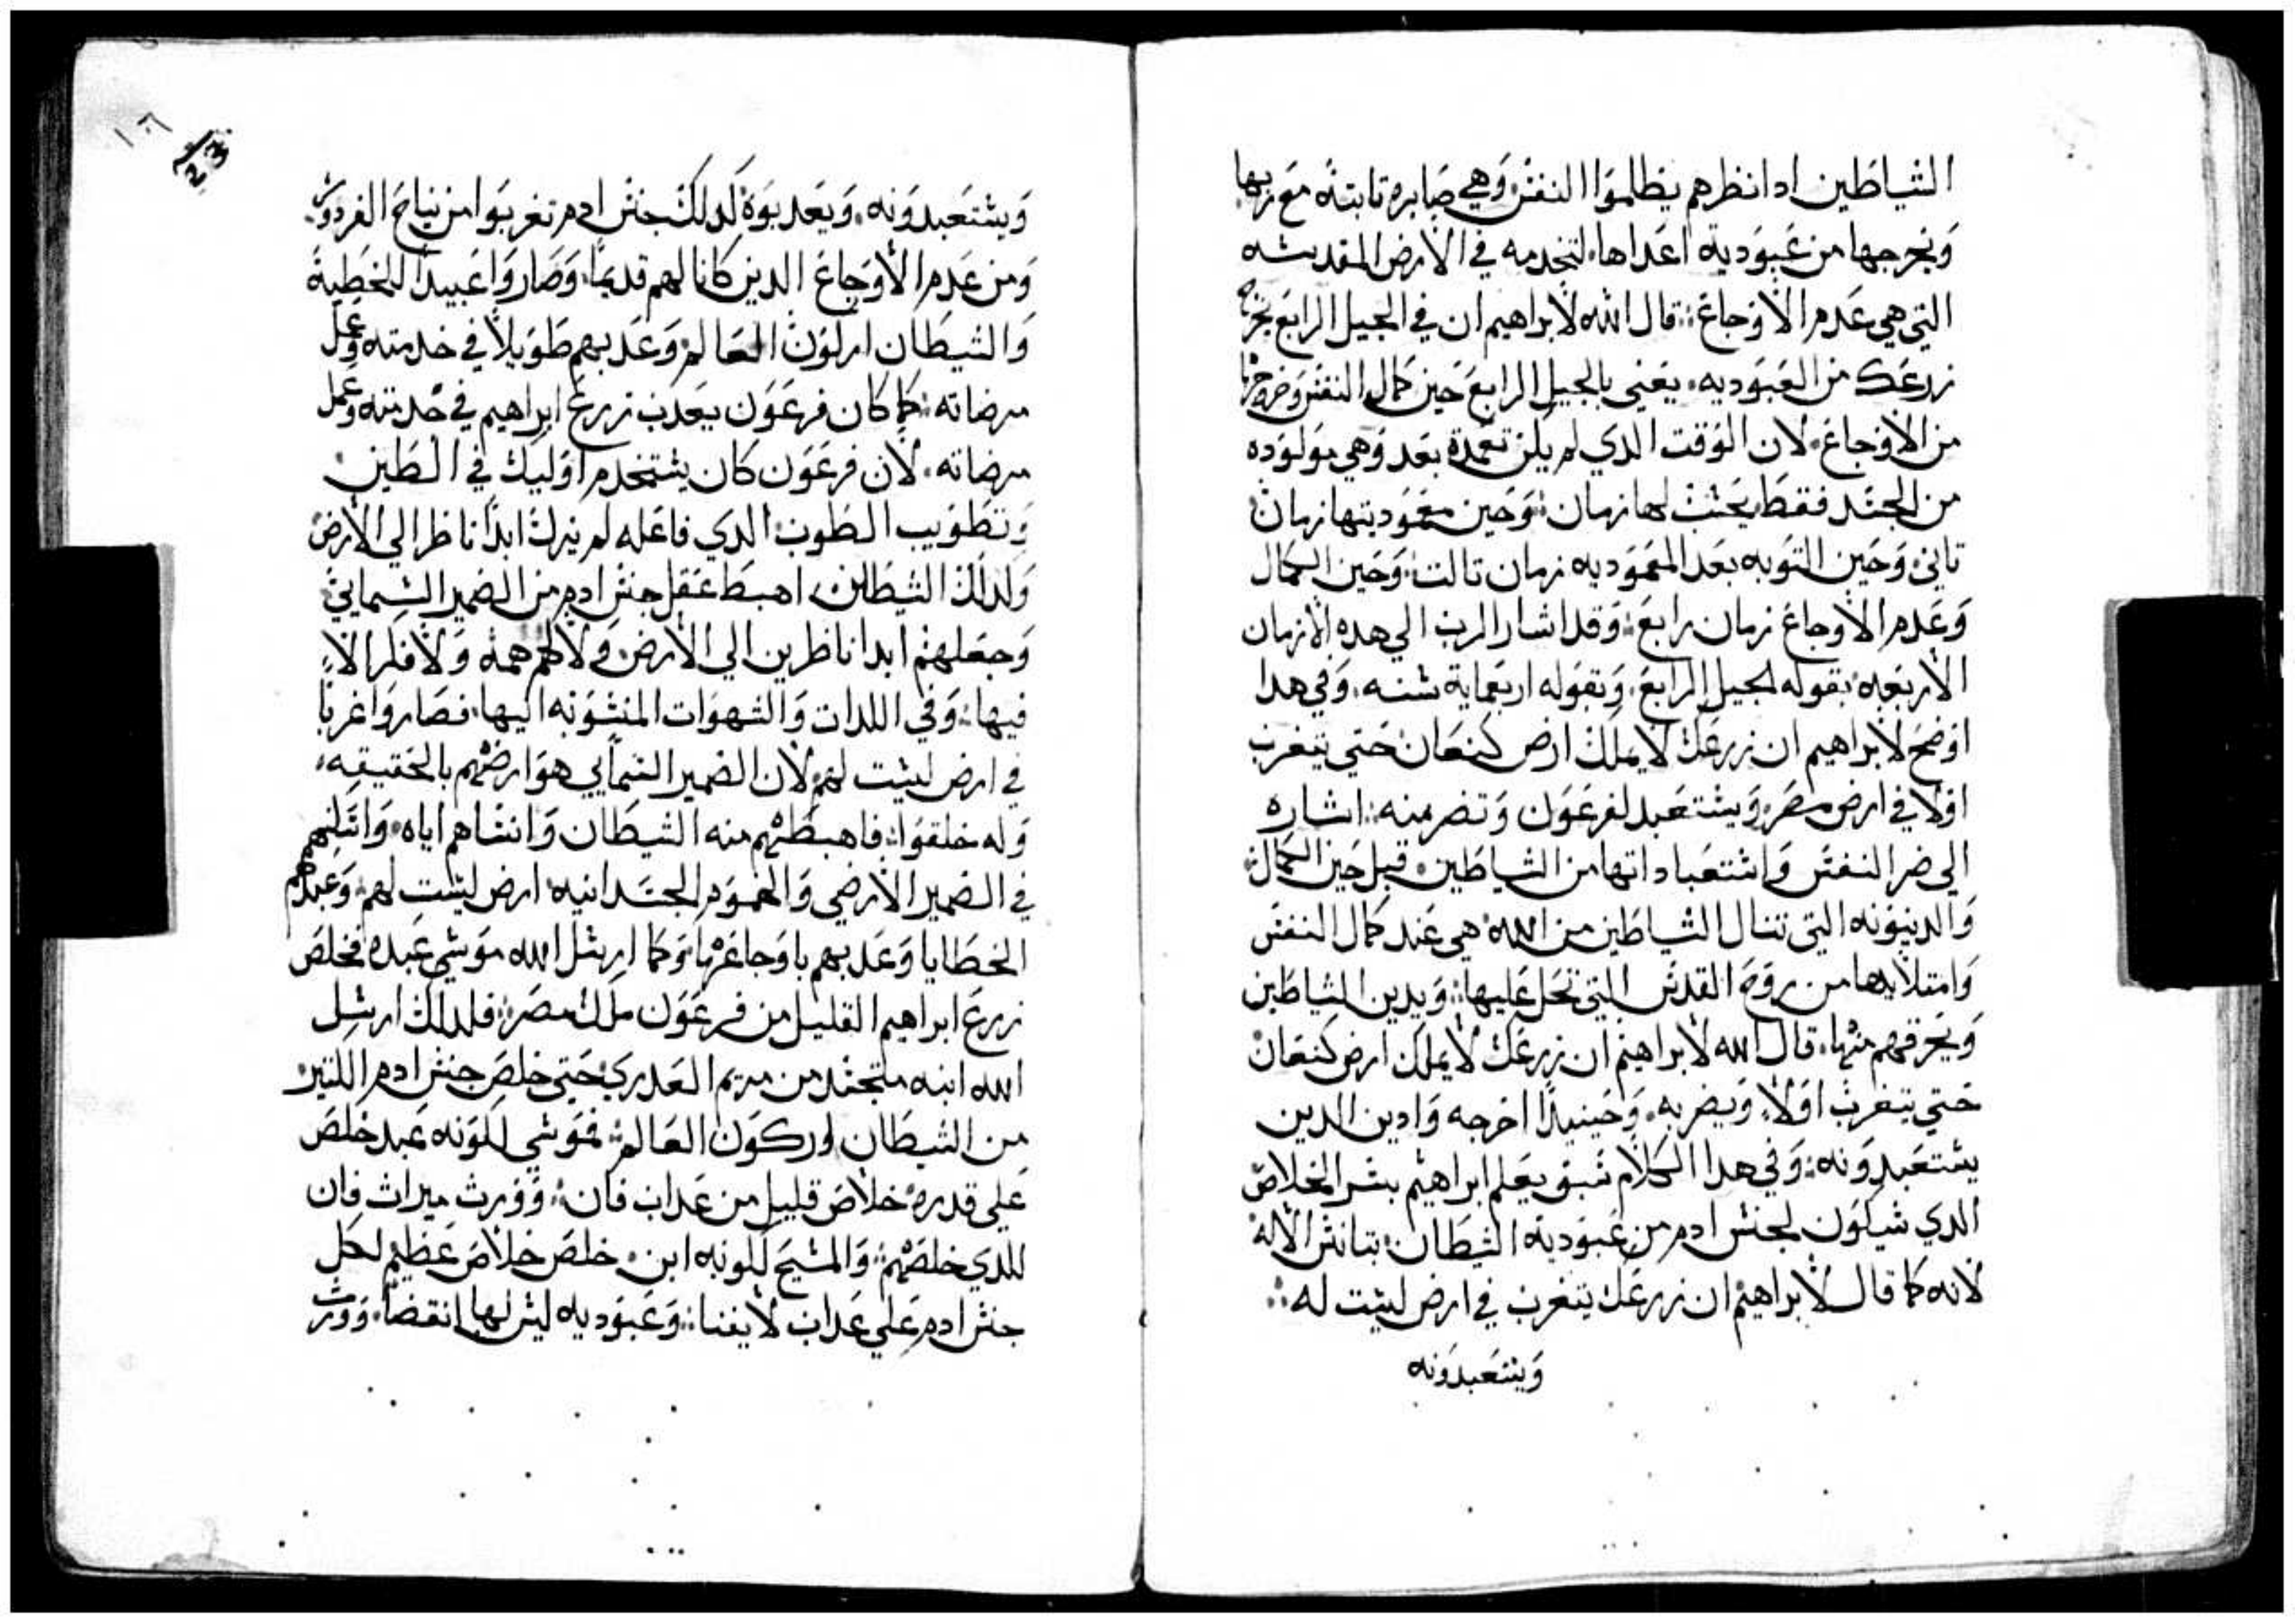 الشياطين ادا نظرهم يظلموا النفس وهي صابره تابته مع ربها
ونخرجها من عبودية اعداها لتخدمه في الارض المقدسه
التي هي عدم الاوجاع قال الله لابراهيم ان في الجيل الرابع نخرج
زرعك من العبوديه يعني بالجيل الرابع حين كمال النفس وخروجها
من الاوجاع لان الوقت الدي لم يكن تعمدة بعد وهي مولوده
من الجسد فقط يحسب لها زمان وحين معموديتها زمان
تاني وحين التوبه بعد المعموديه زمان تالت وحين الكمال
وعدم الاوجاع زمان رابع وقد اشار الرب الي هده الازمان
الاربعه بقوله الجيل الرابع وبقوله اربعماية سنه وفي هدا
اوضح لابراهيم ان زرعك لا يملك ارض كنعان حتي يتغرب
اولا في ارض مصر ويستعبد لفرعون وتضر منه اشاره
الي ضر النفس واستعباداتها من الشياطين قبل حين الكمال
والدينونه التي تنال الشياطين من الله هي عند كمال النفس
وامتلايها من روح القدس التي تحل عليها ويدين الشياطين
ويحرقهم منها قال الله لابراهيم ان زرعك لا يملك ارض كنعان
حتي يتغرب اولا ويضر به وحينيدا اخرجه وادين الدين
يستعبدونه وفي هدا الكلام سبق يعلم ابراهيم بسر الخلاص
الدي سيكون لجنس ادم من عبودية الشيطان بتانس الاله
لانه كما قال لابراهيم ان زرعك يتغرب في ارض ليست له
ويستعبدونه
ويستعبدونه ويعدبوة كدلك جنس ادم تغربوا من نياح الفردوس
ومن عدم الاوجاع الدين كانا لهم قديما وصاروا عبيدا للخطية
والشيطان اركون العالم وعدبهم طويلا في خدمته وعمل
مرضاته كما كان فرعون يعدب زرع ابراهيم في خدمته وعمل
مرضاته لان فرعون كان يستخدم اوليك في الطين
وتطويب الطوب الدي فاعله لم يزل ابدا ناظرا الي الارض
ولدلك الشيطان اهبط عقل جنس ادم من الضمير السمايي
وجعلهم ابدا ناظرين الي الارض ولا لهم همة ولا فكر الا
فيها وفي اللدات والشهوات المنسوبه اليها فصاروا غربا
في ارض ليست لهم لان الضمير السمايي هو ارضهم بالحقيقه
وله خلقوا فاهبطهم منه الشيطان وانساهم اياه واتكلهم
في الضمير الارضي والهموم الجسدانيه ارض ليست لهم وعبدهم
الخطايا وعدبهم باوجاعها وكما ارسل الله موسي عبده فخلص
زرع ابراهيم القليل من فرعون ملك مصر فلدلك ارسل
الله ابنه متجسد من مريم العدري حتي خلص جنس ادم الكتير
من الشيطان اركون العالم فموسي لكونه عبد خلص
علي قدره خلاص قليل من عداب فان وورث ميراث فان
للدي خلصهم والمسيح لكونه ابن خلص خلاص عظيم لكل
جنس ادم علي عداب لا يفنا وعبوديه ليس لها انقضا وورث